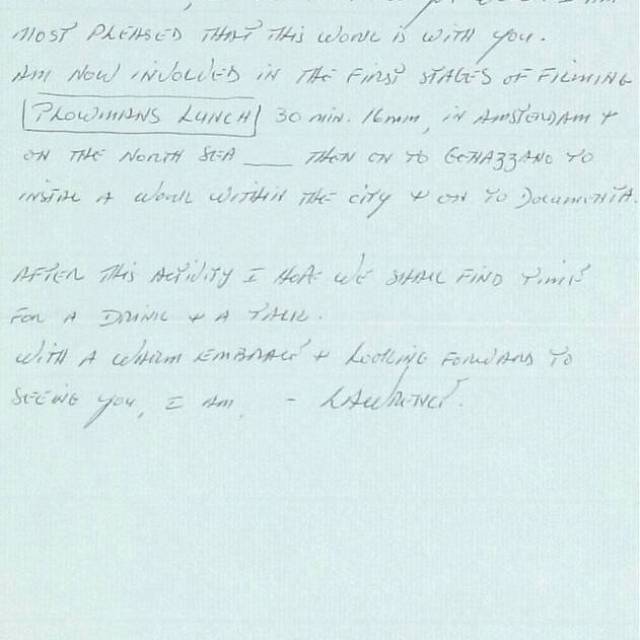 MOST PLEASED THAT THIS WORK IS WITH YOU.
AM NOW INVOLVED IN THE FIRST STAGES OF FILMING
PLOWMANS LUNCH 30 MIN. 16mm, IN AMSTERDAM +
ON THE NORTH SEA ___ THEN ON TO GENAZZANO TO
INSTAL A WORK WITHIN THE CITY + ON TO DOCUMENTA.
AFTER THIS ACTIVITY I HOPE WE SHALL FIND TIME
FOR A DRINK + A TALK.
WITH A WARM EMBRACE + LOOKING FORWARD TO
SEEING YOU, I AM, - LAWRENCE.